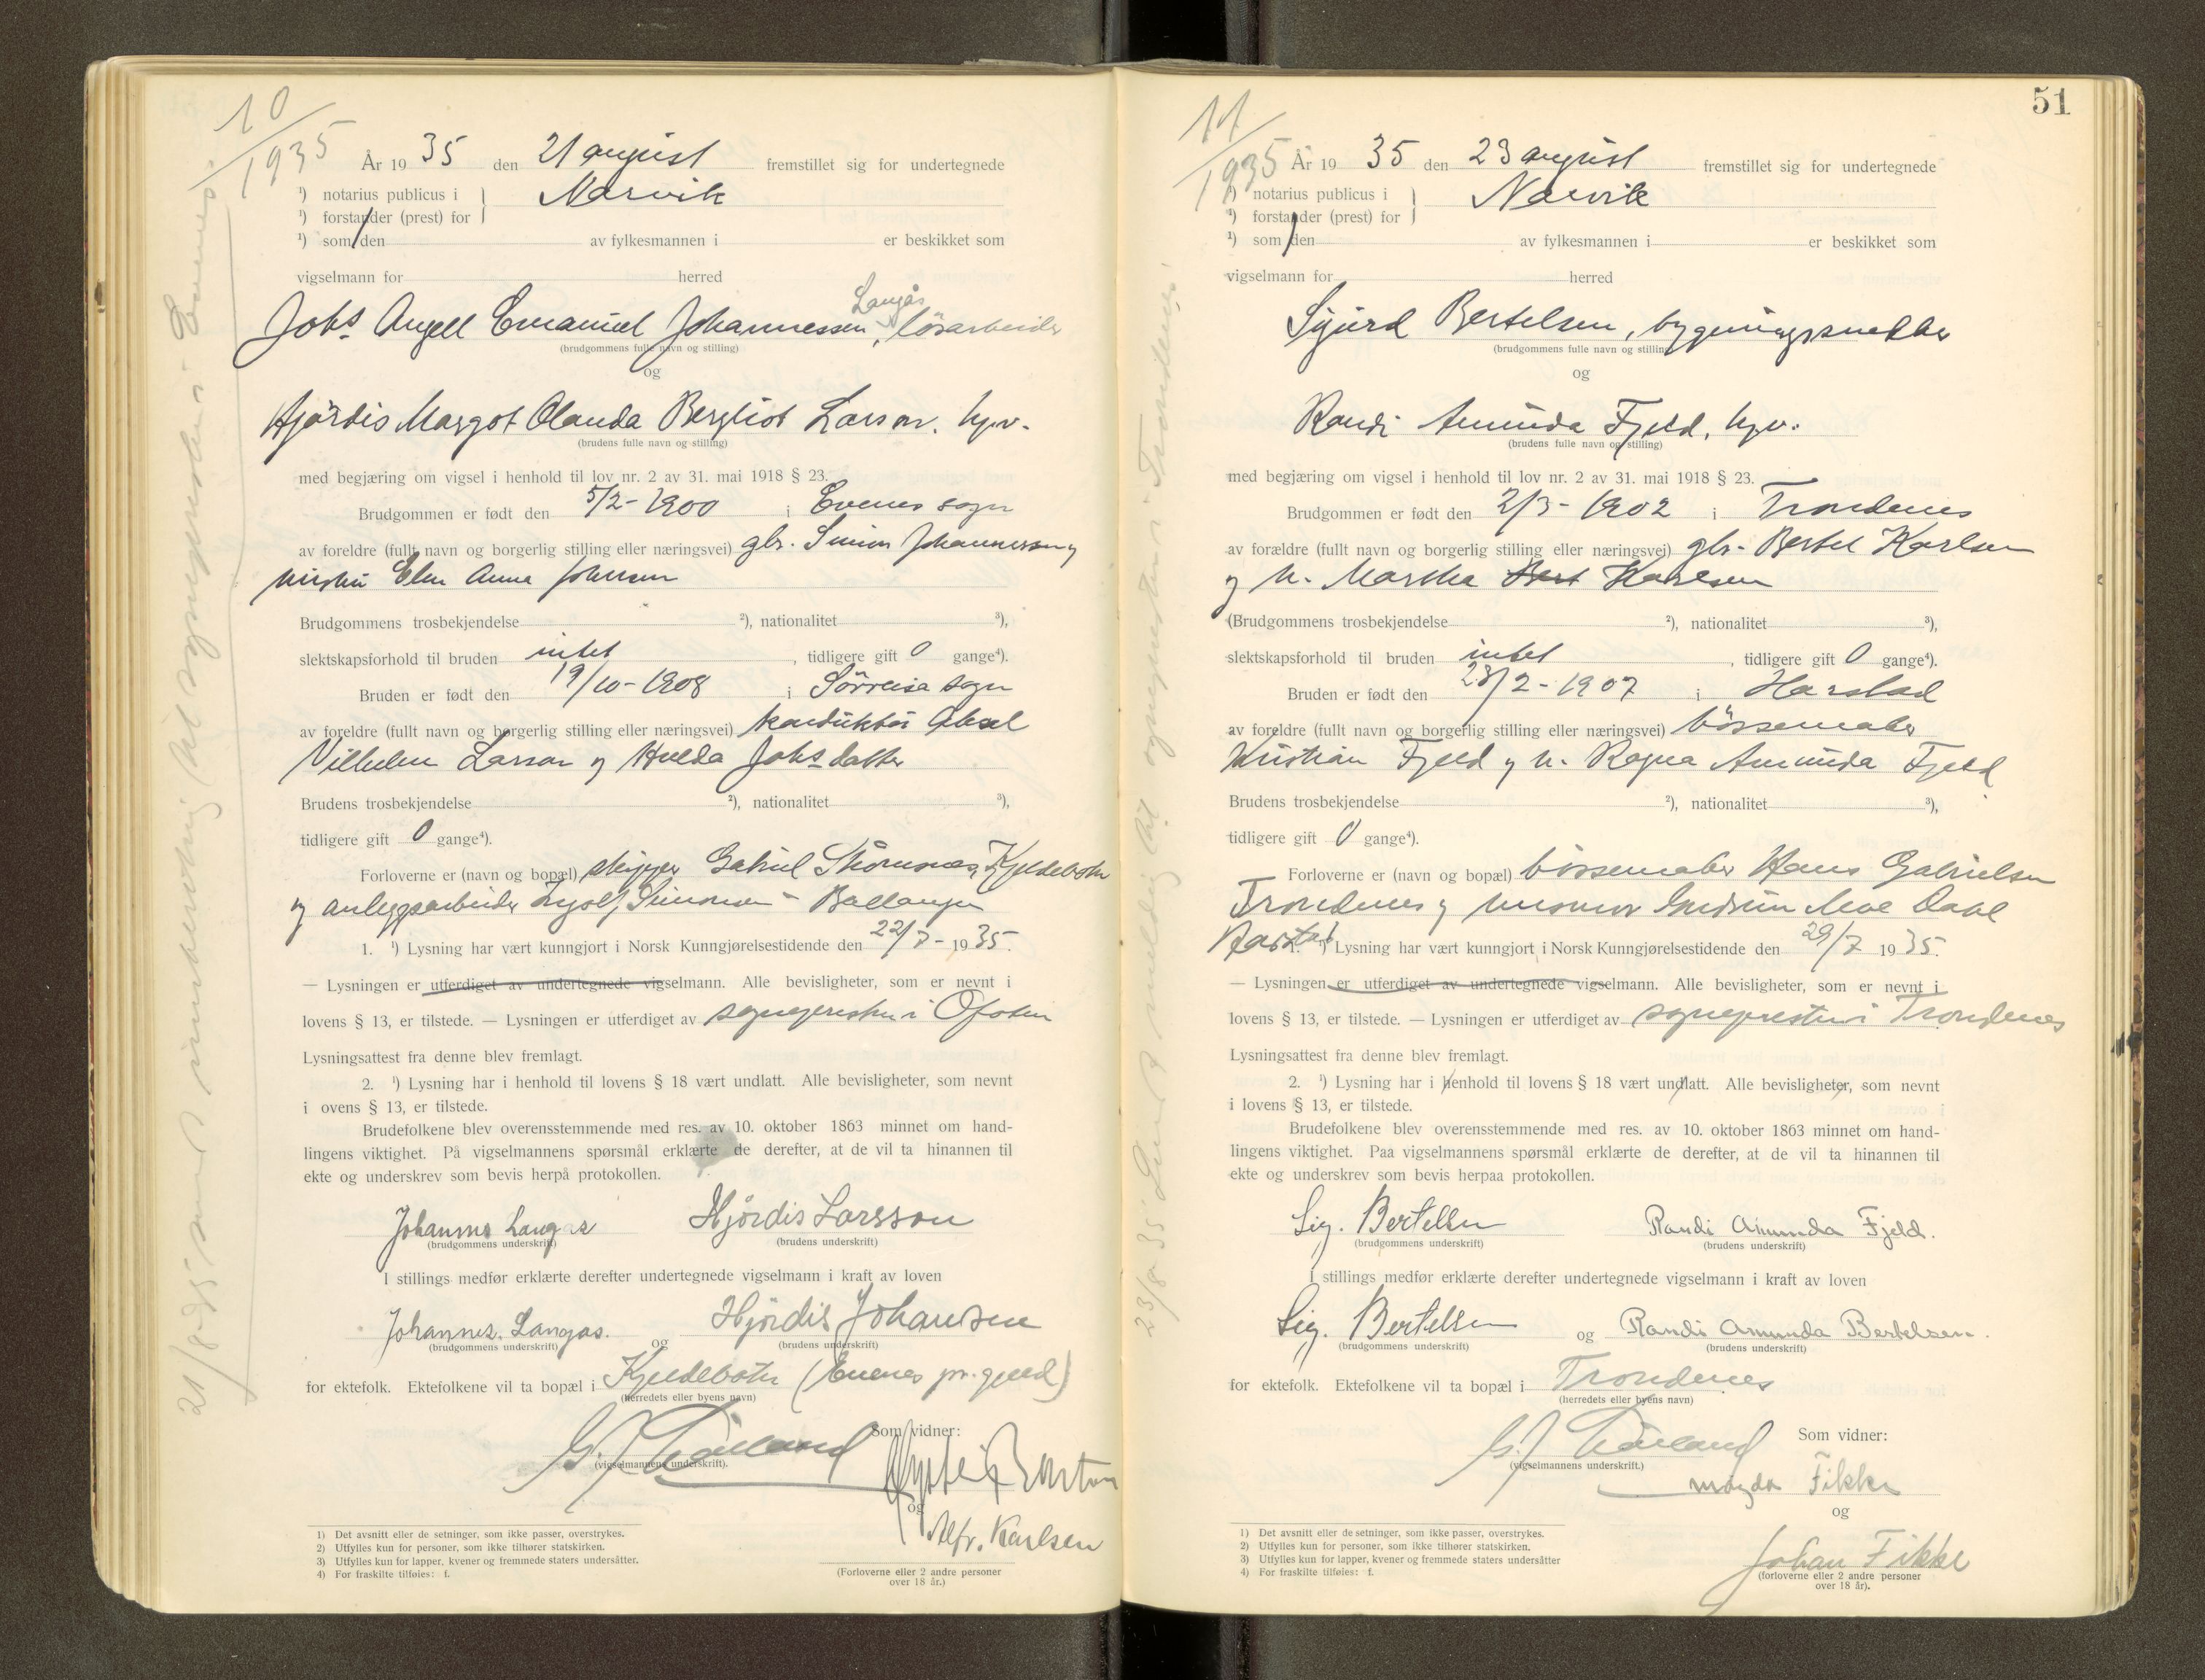 10/1935
År 1935 den 21 august fremstillet sig for undertegnede
¹) notarius publicus i } Narvik
¹) forstander (prest) for
¹) som den av fylkesmannen i er beskikket som
vigselmann for herred
Langås
Johs Angell Emanuel Johannessen, løsarbeider
(brudgommens fulle navn og stilling)
og
Hjørdis Margot Olanda Bergliot Larson. hpv.
(brudens fulle navn og stilling)
med begjæring om vigsel i henhold til lov nr. 2 av 31. mai 1918 § 23.
Brudgommen er født den 5/2-1900 i Evenes sogn
av foreldre (fullt navn og borgerlig stilling eller næringsvei) gbr. Simon Johannessen og
hustru Elen Anna Johnsen
Brudgommens trosbekjendelse ²), nationalitet ³),
slektskapsforhold til bruden intet , tidligere gift 0 gange⁴).
Bruden er født den 19/10-1908 i Sørreisa sogn
av foreldre (fullt navn og borgerlig stilling eller næringsvei) konduktør Aksel
Vilhelm Larson og Hulda Johsdatter
Brudens trosbekjendelse ²), nationalitet ³),
tidligere gift 0 gange⁴).
Forloverne er (navn og bopæl) skipper Gabriel Kjeldebotn
og anleggsarbeider Ingolf Simonsen - Ballangen
1. ¹) Lysning har vært kunngjort i Norsk Kunngjørelsestidende den 22/7-1935.
— Lysningen er utferdiget av undertegnede vigselmann. Alle bevisligheter, som er nevnt i
lovens § 13, er tilstede. — Lysningen er utferdiget av sognepresten i Ofoten
Lysningsattest fra denne blev fremlagt.
2. ¹) Lysning har i henhold til lovens § 18 vært undlatt. Alle bevisligheter, som nevnt
i ovens § 13, er tilstede.
Brudefolkene blev overensstemmende med res. av 10. oktober 1863 minnet om hand-
lingens viktighet. På vigselmannens spørsmål erklærte de derefter, at de vil ta hinannen til
ekte og underskrev som bevis herpå protokollen.
Johannes Langås Hjørdis Larsson
(brudgommens underskrift) (brudens underskrift)
I stillings medfør erklærte derefter undertegnede vigselmann i kraft av loven
Johannes. Langås. og Hjørdis Johansen
(brudgommens underskrift) (brudens underskrift)
for ektefolk. Ektefolkene vil ta bopæl i Kjeldebotn (Evenes pr.gjeld)
(herredets eller byens navn)
Som vidner:
(vigselmannens underskrift).
og
Alfr. Karlsen
1) Det avsnitt eller de setninger, som ikke passer, overstrykes.
2) Utfylles kun for personer, som ikke tilhører statskirken.
3) Utfylles kun for lapper, kvener og fremmede staters undersåtter.
4) For fraskilte tilføies: f.
(Forloverne eller 2 andre personer
over 18 år.)
51
11/1935
År 1935 den 23 august fremstillet sig for undertegnede
¹) notarius publicus i } Narvik
¹) forstander (prest) for
¹) som den av fylkesmannen i er beskikket som
vigselmann for herred
Sigurd Bertelsen, bygningssnekker
(brudgommens fulle navn og stilling)
og
Randi Amunda Fjeld, hpv.
(brudens fulle navn og stilling)
med begjæring om vigsel i henhold til lov nr. 2 av 31. mai 1918 § 23.
Brudgommen er født den 2/3-1902 i Trondenes
av forældre (fullt navn og borgerlig stilling eller næringsvei) gbr. Bertel Karlsen
og h. Martha Bert Karlsen
(Brudgommens trosbekjendelse ²), nationalitet ³),
slektskapsforhold til bruden intet , tidligere gift 0 gange⁴).
Bruden er født den 28/2-1907 i Harstad
av foreldre (fullt navn og borgerlig stilling eller næringsvei) børsemaker
Kristian Fjeld og h. Ragna Amunda Fjeld
Brudens trosbekjendelse ²), nationalitet ³),
tidligere gift 0 gange⁴).
Forloverne er (navn og bopæl) børsemaker Hans Gabrielsen
Trondenes og Gudrun Moe Dahl
Harstad
1. ¹) Lysning har vært kunngjort i Norsk Kunngjørelsestidende den 29/7 1935.
— Lysningen er utferdiget av undertegnede vigselmann. Alle bevisligheter, som er nevnt i
lovens § 13, er tilstede. — Lysningen er utferdiget av sognepresten i Trondenes
Lysningsattest fra denne blev fremlagt.
2. ¹) Lysning har i henhold til lovens § 18 vært undlatt. Alle bevisligheter, som nevnt
i lovens § 13, er tilstede.
Brudefolkene blev overensstemmende med res. av 10. oktober 1863 minnet om hand-
lingens viktighet. Paa vigselmannens spørsmål erklærte de derefter, at de vil ta hinannen til
ekte og underskrev som bevis herpaa protokollen.
Sig. Bertelsen Randi Amunda Fjeld.
(brudgommens underskrift) (brudens underskrift)
I stillings medfør erklærte derefter undertegnede vigselmann i kraft av loven
Sig. Bertelsen og Randi Amunda Bertelsen.
(brudgommens underskrift) (brudens underskrift)
for ektefolk. Ektefolkene vil ta bopæl i Trondenes
(herredets eller byens navn)
Som vidner:
(vigselmannens underskrift.)
Magda Fikke
og
Johan Fikke
1) Det avsnitt eller de setninger, som ikke passer, overstrykes.
2) Utfylles kun for personer, som ikke tilhører statskirken.
3) Utfylles kun for lapper, kvener og fremmede staters undersåtter
4) For fraskilte tilføies: f.
(forloverne eller 2 andre personer
over 18 år).